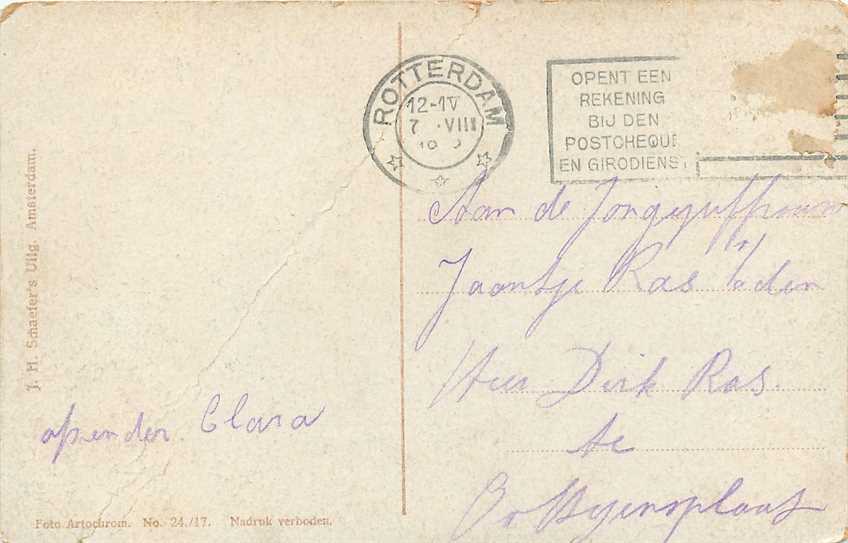 ROTTERDAM
12-IV
7 VIII
OPENT EEN
REKENING
BIJ DEN
POSTCHEQUE
EN GIRODIENST
Aan de Jongejuffrouw
Jaantje Ras b/den
Heer Dirk Ras.
te
Ooltgensplaat
afzender Clara
J. H. Schaefer's Uitg. Amsterdam.
Foto Artochrom. No. 24./17. Nadruk verboden.